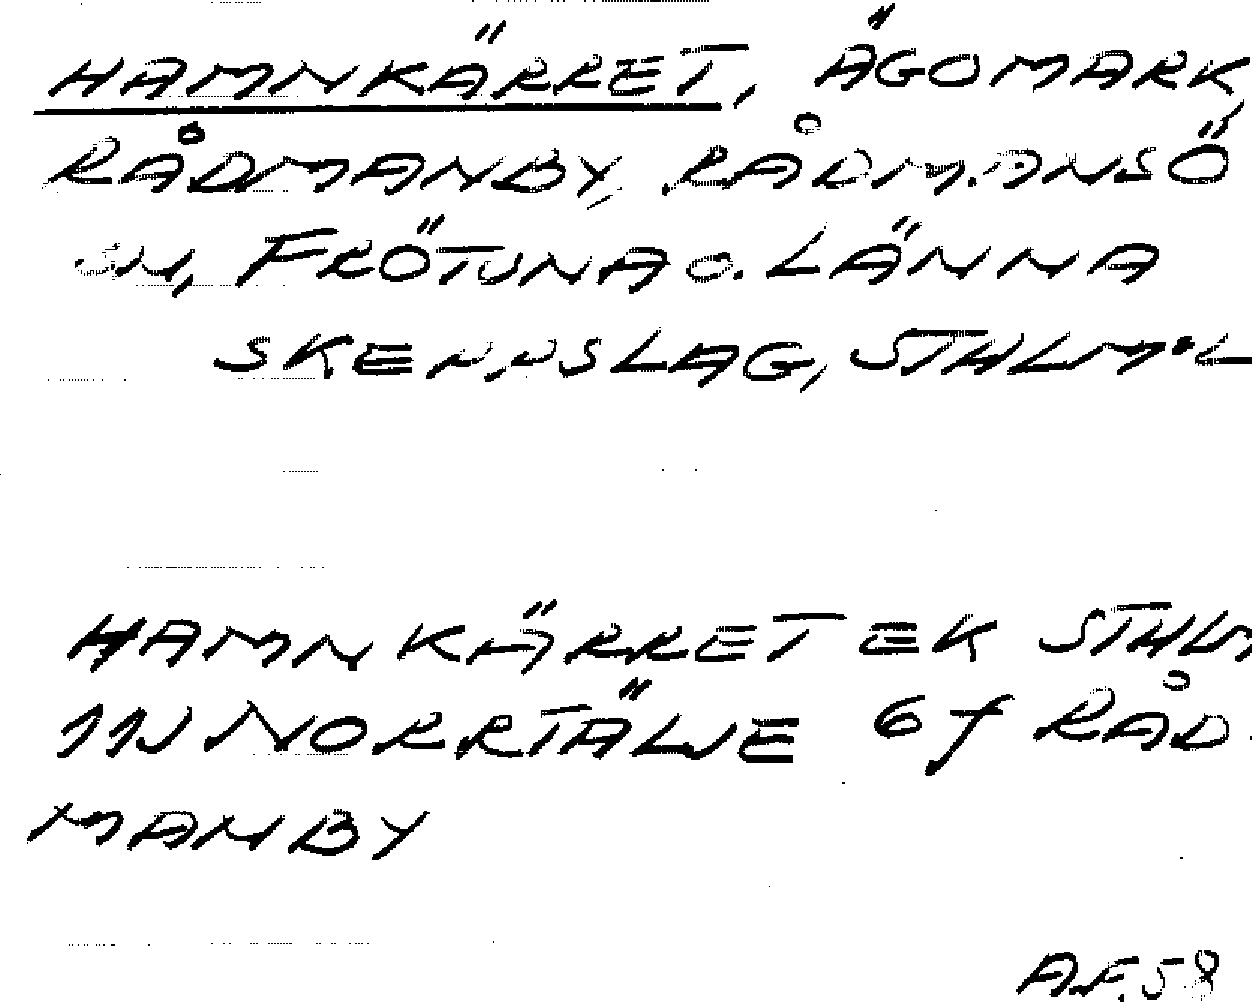 HAMNKÄRRET, ÄGOMARK,
RÅDMANBY, RÅDMANSÖ
SN, FRÖTUNA O. LÄNNA
SKEPPSLAG, STHLMS L
HAMNKÄRRET EK STHLM
11J NORRTÄLJE 6f RÅD
MANBY
A.F. 58